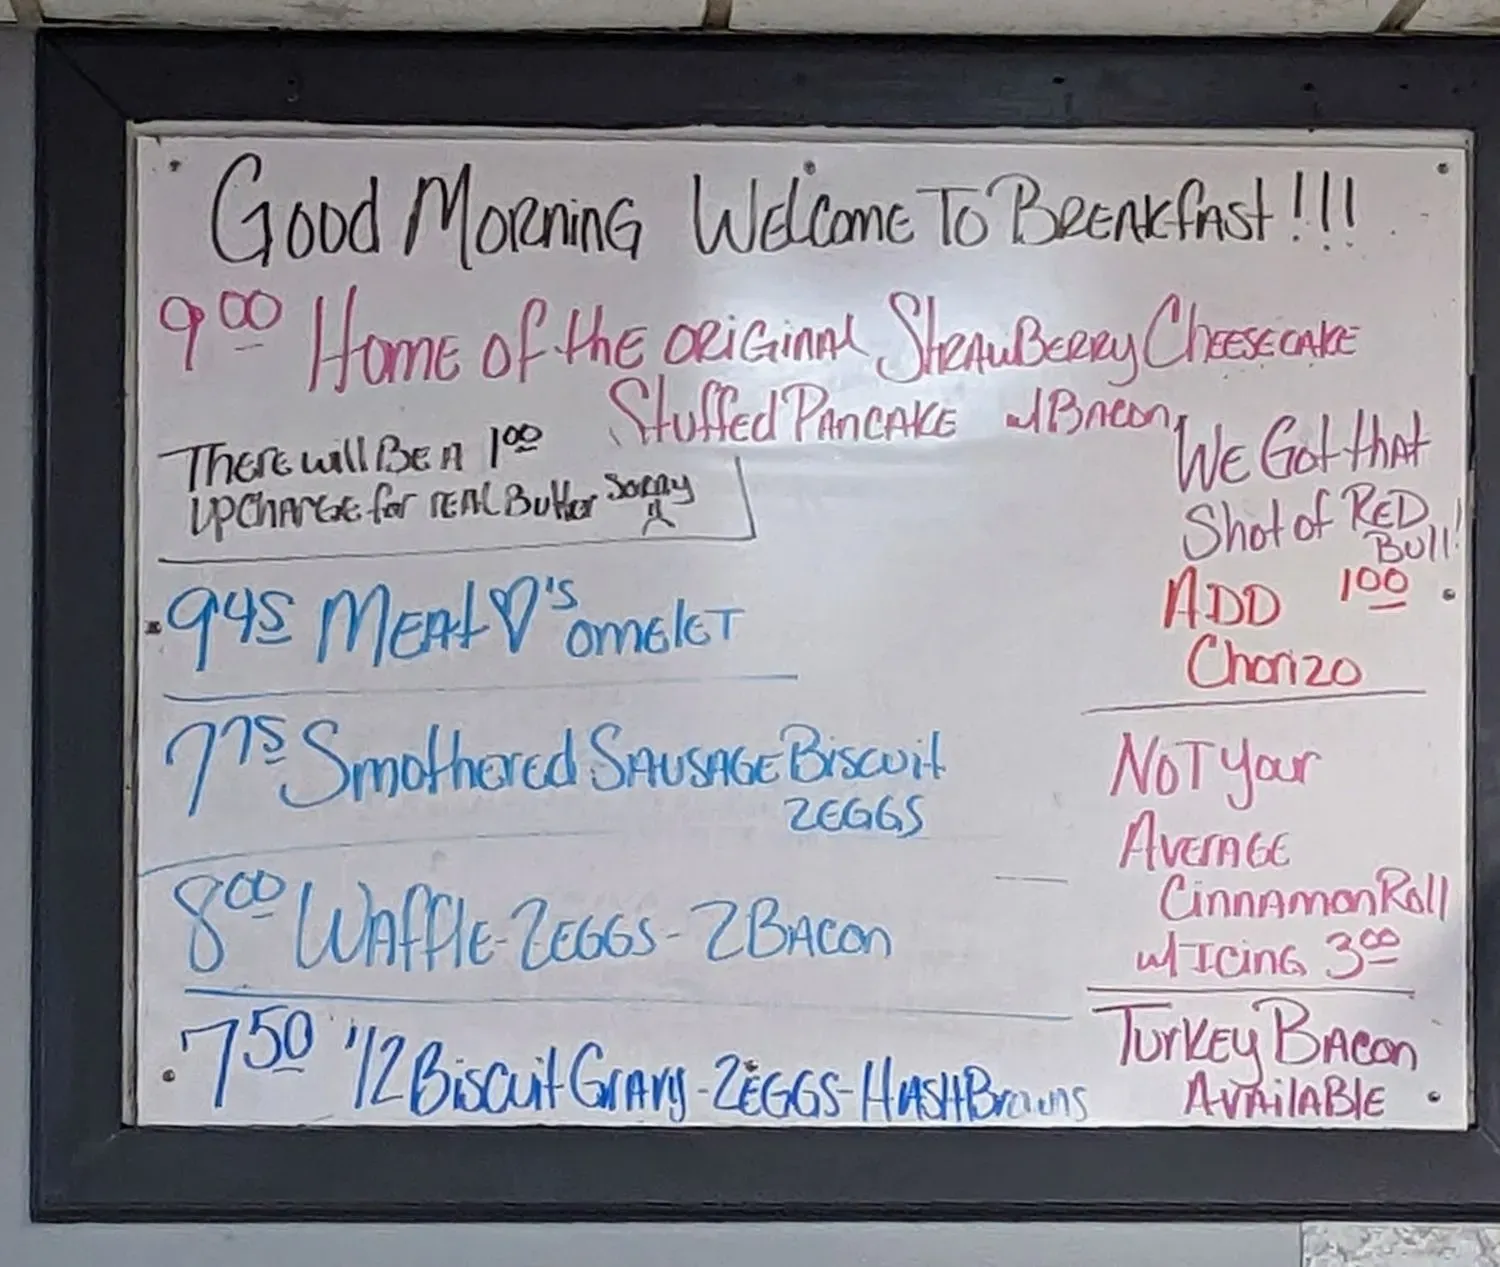 Good Morning Welcome To Breakfast!!!
9.00 Home of the original Strawberry Cheesecake
Stuffed Pancake w/ Bacon
There will Be A 1.00
Upcharge for real Butter Sorry
9.45 Meat ♡'s omelet
7.75 Smothered Sausage Biscuit
2 Eggs
8.00 Waffle - 2 Eggs - 2 Bacon
7.50 1/2 Biscuit Gravy - 2 Eggs - Hash Browns
We Got that
Shot of Red
Bull!
ADD 1.00
Chorizo
Not Your
Average
Cinnamon Roll
w/ Icing 3.00
Turkey Bacon
Available